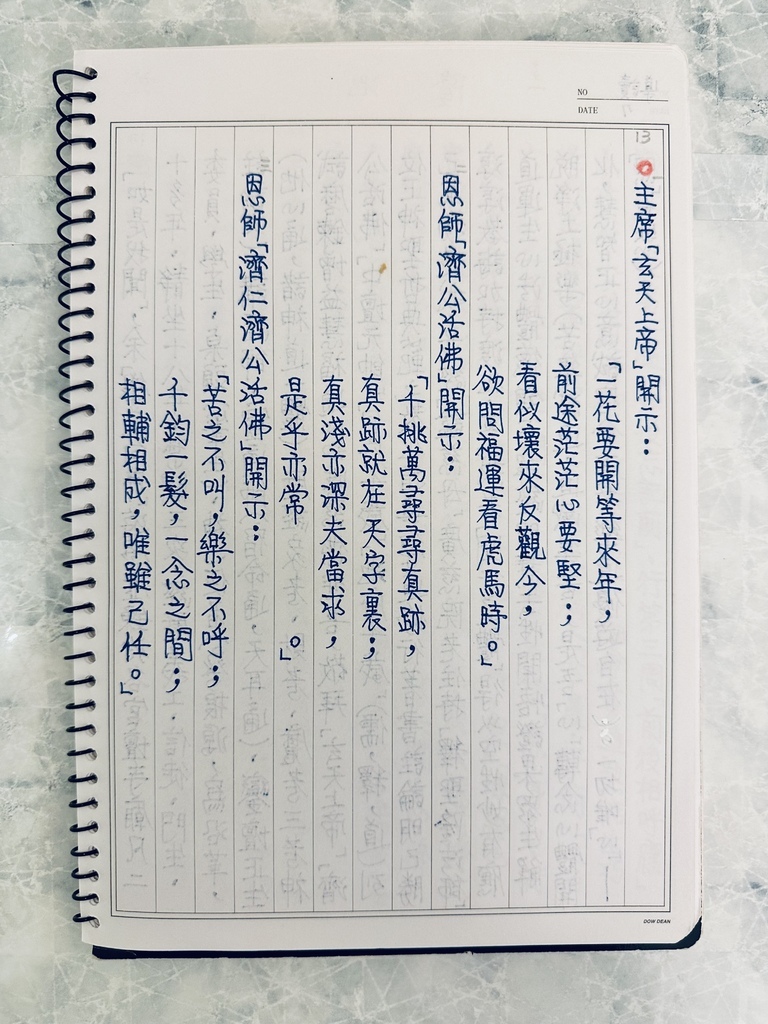 NO
DATE
13
主席「玄天上帝」開示：
「一花要開等來年，
前途茫茫心要堅；
看似壞來反觀今，
欲問福運看虎馬時。」
恩師「濟公活佛」開示：
「千挑萬尋尋真跡，
真跡就在天字裏；
真淺亦深夫當求，
是乎亦常 。」
恩師「濟仁濟公活佛」開示：
「苦之不叫，樂之不呼；
千鈞一髮，一念之間；
相輔相成，唯雖己任。」
DOW DEAN